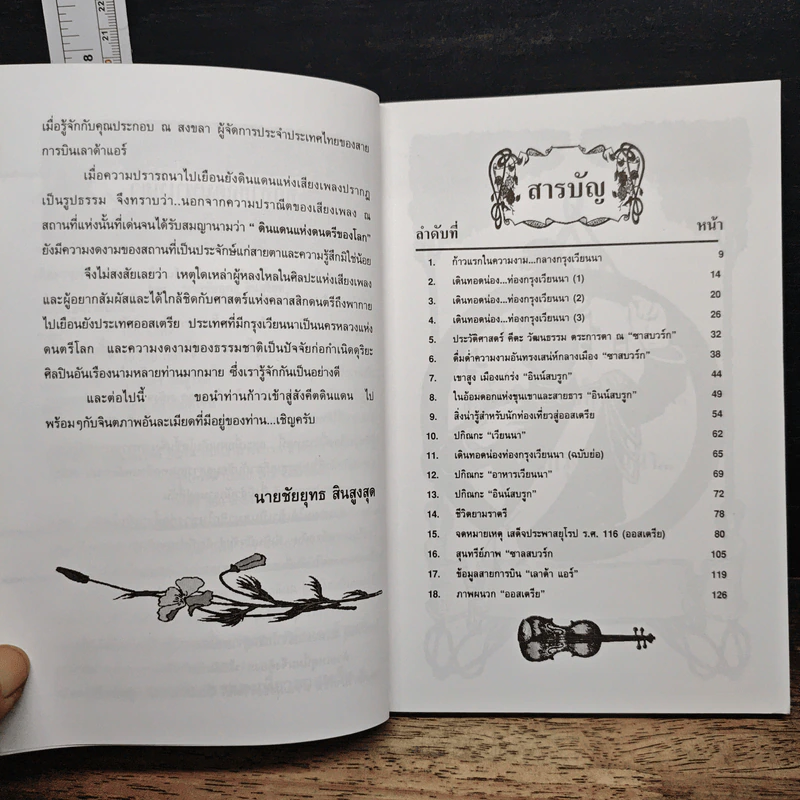 8
21
22
เมื่อรู้จักกับคุณประกอบ ณ สงขลา ผู้จัดการประจำประเทศไทยของสาย
การบินเลาด้าแอร์
เมื่อความปรารถนาไปเยือนยังดินแดนแห่งเสียงเพลงปรากฏ
เป็นรูปธรรม จึงทราบว่า..นอกจากความปราณีตของเสียงเพลง ณ
สถานที่แห่งนั้นที่เด่นจนได้รับสมญานามว่า “ ดินแดนแห่งดนตรีของโลก”
ยังมีความงดงามของสถานที่เป็นประจักษ์แก่สายตาและความรู้สึกมิใช่น้อย
จึงไม่สงสัยเลยว่า เหตุใดเหล่าผู้หลงใหลในศิลปะแห่งเสียงเพลง
และผู้อยากสัมผัสและได้ใกล้ชิดกับศาสตร์แห่งคลาสสิกดนตรีถึงพากาย
ไปเยือนยังประเทศออสเตรีย ประเทศที่มีกรุงเวียนนาเป็นนครหลวงแห่ง
ดนตรีโลก และความงดงามของธรรมชาติเป็นปัจจัยก่อกำเนิดดุริยะ
ศิลปินอันเรืองนามหลายท่านมากมาย ซึ่งเรารู้จักกันเป็นอย่างดี
และต่อไปนี้ ขอนำท่านก้าวเข้าสู่สังคีตดินแดน ไป
พร้อมๆกับจินตภาพอันละเมียดที่มีอยู่ของท่าน...เชิญครับ
นายชัยยุทธ สินสูงสุด
สารบัญ
ลำดับที่ หน้า
1. ก้าวแรกในความงาม...กลางกรุงเวียนนา 9
2. เดินทอดน่อง...ท่องกรุงเวียนนา (1) 14
3. เดินทอดน่อง...ท่องกรุงเวียนนา (2) 20
4. เดินทอดน่อง...ท่องกรุงเวียนนา (3) 26
5. ประวัติศาสตร์ คีตะ วัฒนธรรม ตระการตา ณ “ซาสบวร์ก” 32
6. ดื่มด่ำความงามอันทรงเสน่ห์กลางเมือง “ซาสบวร์ก” 38
7. เขาสูง เมืองแกร่ง “อินน์สบรูก” 44
8. ในอ้อมดอกแห่งขุนเขาและสายธาร “อินน์สบรูก” 49
9. สิ่งน่ารู้สำหรับนักท่องเที่ยวสู่ออสเตรีย 54
10. ปกิณกะ “เวียนนา” 62
11. เดินทอดน่องท่องกรุงเวียนนา (ฉบับย่อ) 65
12. ปกิณกะ “อาหารเวียนนา” 69
13. ปกิณกะ “อินน์สบรูก” 72
14. ชีวิตยามราตรี 78
15. จดหมายเหตุ เสด็จประพาสยุโรป ร.ศ. 116 (ออสเตรีย) 80
16. สุนทรีย์ภาพ “ซาลสบวร์ก 105
17. ข้อมูลสายการบิน “เลาด้า แอร์” 119
18. ภาพผนวก “ออสเตรีย” 126